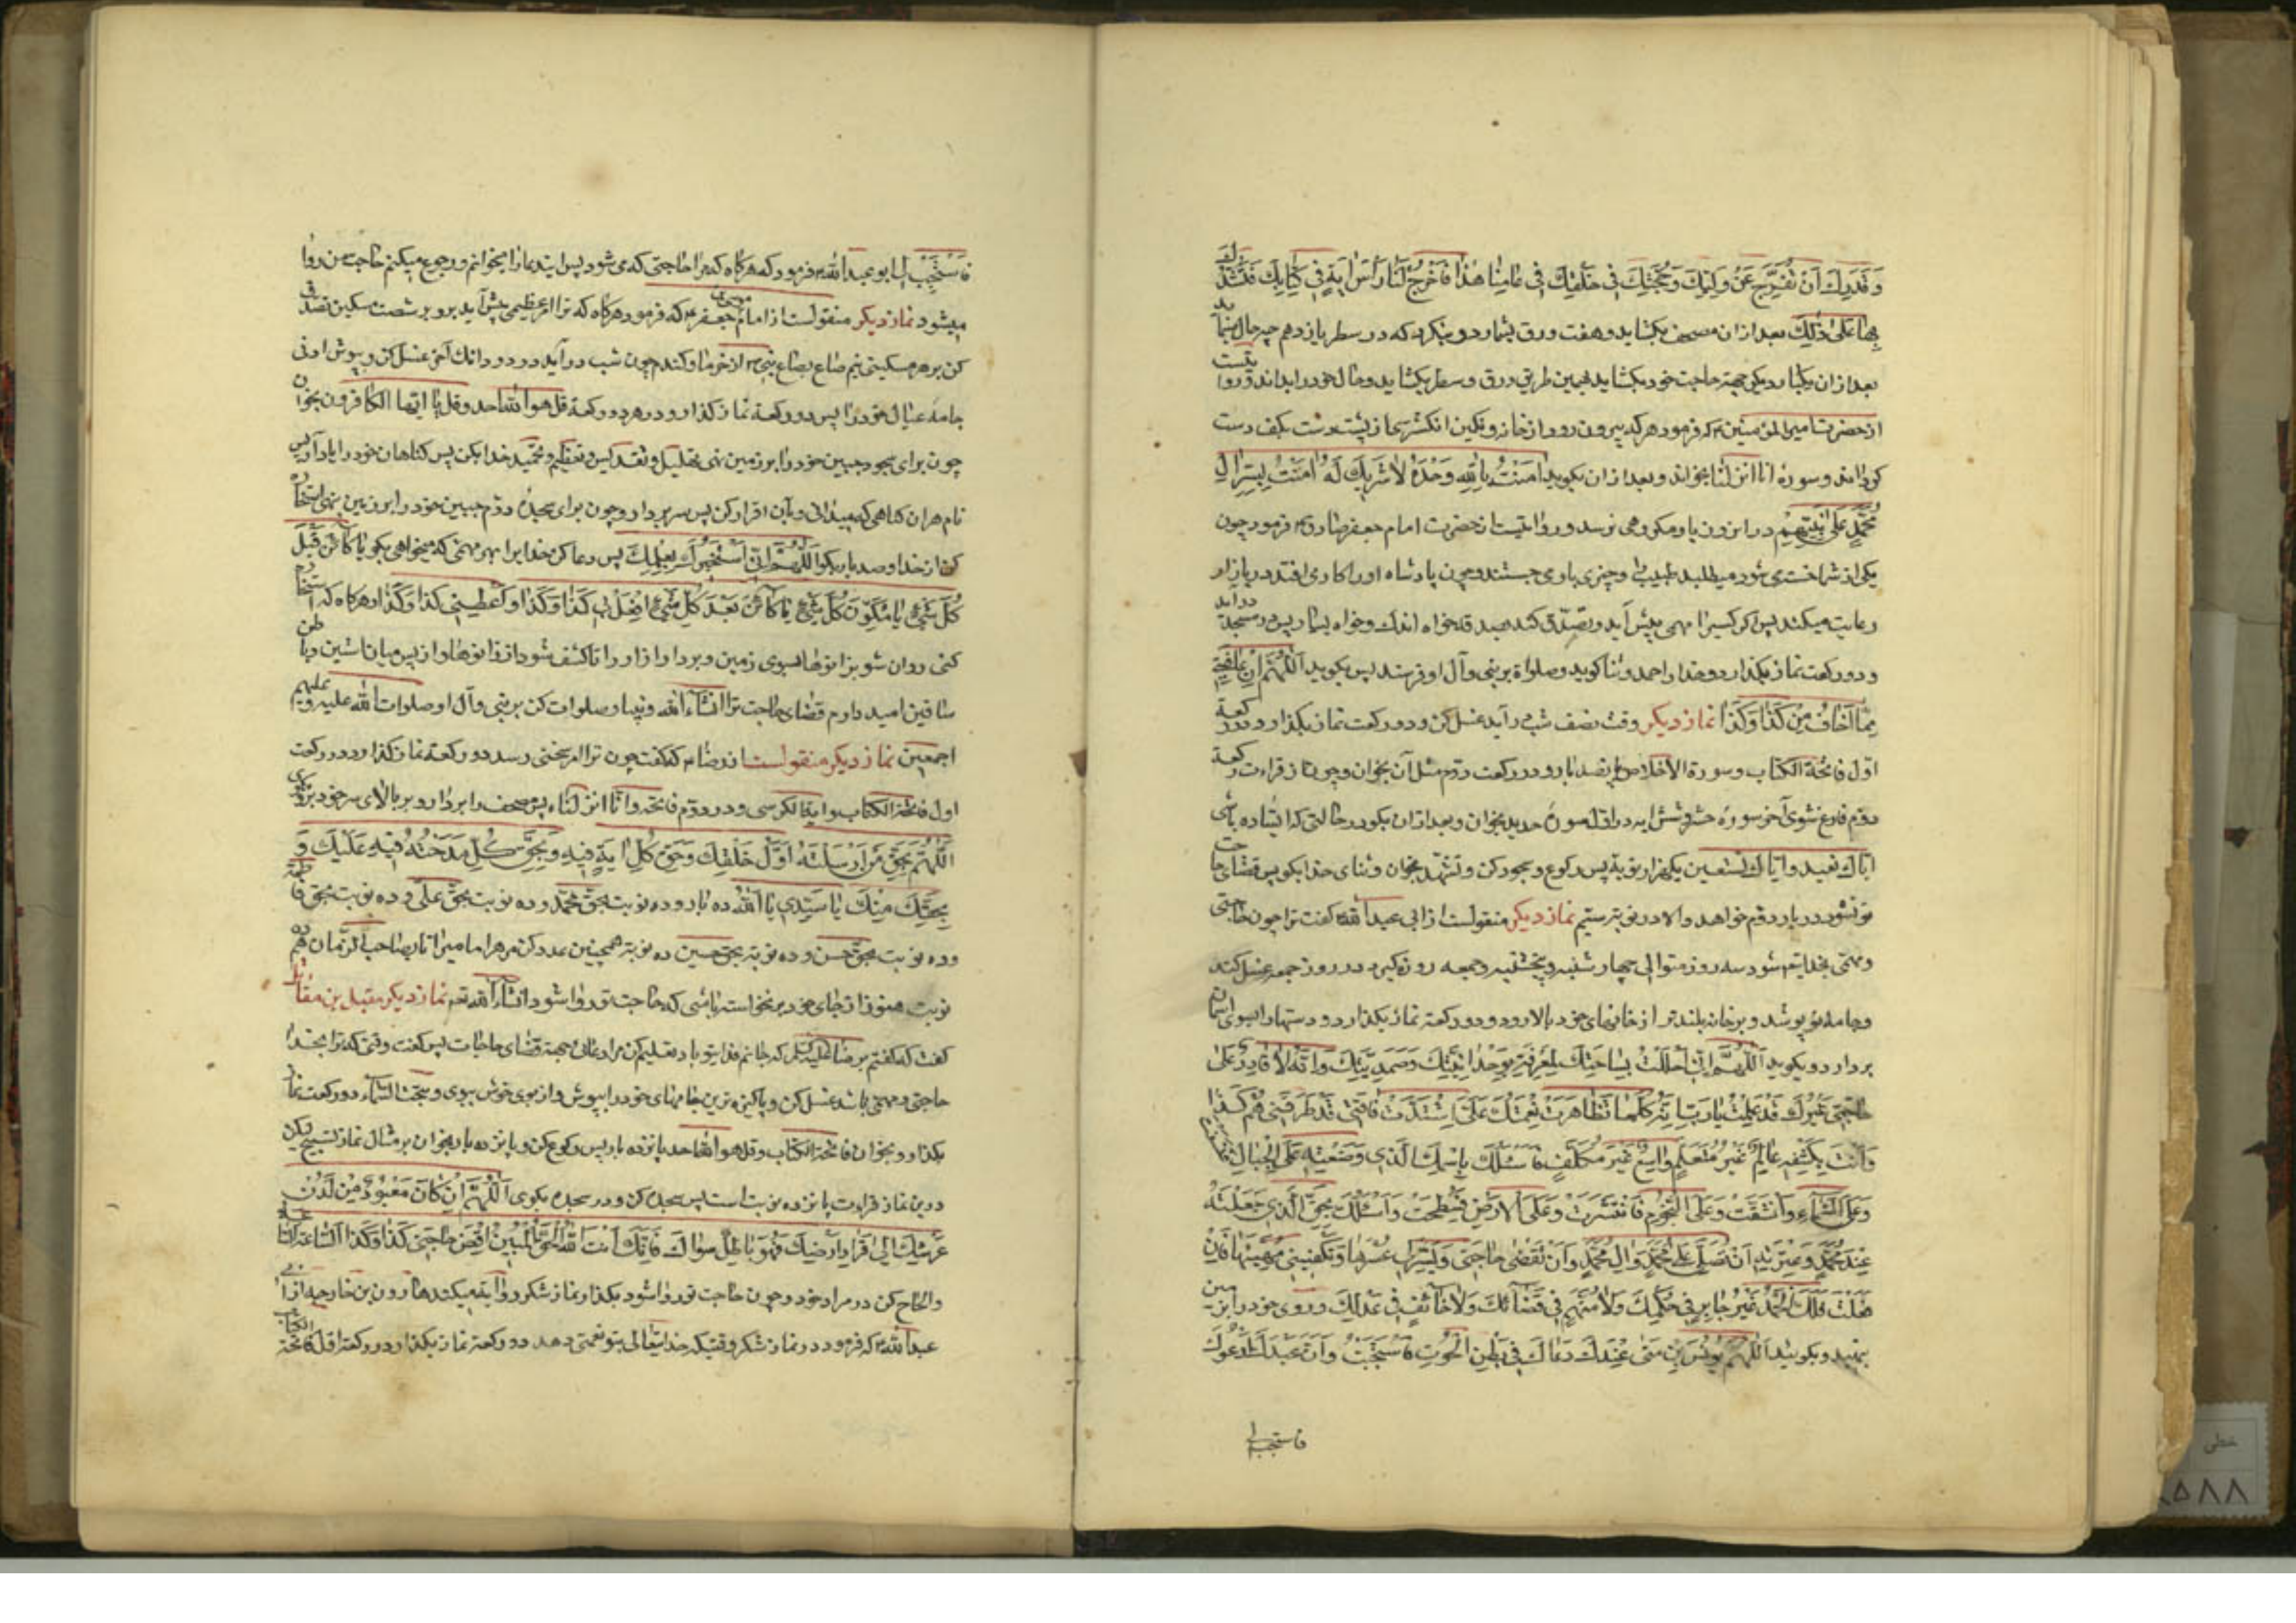 وَقَدَرِكَ اَنْ تُفَرِّجَ عَنْ وَلِيِّكَ وَحُجَّتِكَ فى خَلْقِكَ فى عامِنا هذا فَاَخْرِجْ لَنا رَأسَ ايَةٍ فى كِتابِكَ نَسْتَدِلُّ
بِها عَلى ذلِكَ بعد از ان مصحف بکشاید و هفت ورق بشمارد و بنکرد که در سطر یازدهم چه حال مینماید
بعد از ان یکبار دیکر جهة حاجت خود بکشاید بهمین طریق ورق و سطر بکشاید و حال خود را بداند و روایتست
از حضرت امیر المؤمنین ع که فرمود هر که بیرون رود از خانه و نکین انکشتری از پشت دست بکف دست
کرداند و سورۀ انا انزلنا بخواند و بعد از ان بکوید امَنْتُ بِاللهِ وَحْدَهُ لا شَريكَ لَهُ امَنْتُ بِسِرِّ الِ
مُحَمَّدٍ وَعَلانِيَتِهِمْ در ان روز باو مکروهی نرسد و روایتست از حضرت امام جعفر صادق ع فرمود چون
یکی از شما خستری شود میطلبد طبیب را و چیزی باو می جستند و چون پادشاه او را کاری افتد در بازار
رعایت میکنند پس اکر کسیرا مهمی پیش آید و تصدق کند بصدقه خواه اندک و خواه بسیار پس در مسجد در آید
و دو رکعت نماز بکذارد و خدا را حمد و ثنا کوید و صلواة بر نبی و آل او فرستد پس بکوید اَللّهُمَّ اِنْ عافَيْتَنى
مِمّا اَخافُ مِنْ كَذا وَكَذا نماز دیکر وقت نصف شب در آید غسل کن و دو رکعت نماز بکذار و در رکعة
اوّل فاتحة الکتاب و سورة الاخلاص پانصد بار و در رکعت دوّم مثل آن بخوان و چون از قراءت رکعة
دوّم فارغ شوی آخر سورۀ حشر و شش ایه در اول سورۀ حدید بخوان و بعد از ان بکو در حالتی که ایستاده باشی
ایاک نعبد و ایاک نستعین یکهزار نوبة پس رکوع و سجود کن و تشهد بخوان و ثنای خدا بکو پس قضای حاجت
تو نشود در بار دوّم خواهد والا در نوبة سیّم نماز دیکر منقولست از ابی عبد الله ع کفت ترا چون حاجتی
و مهمّی بخدایتع شود سه روز متوالی چهار شنبه و پنجشنبه و جمعه روزه کیرد در روز جمعه غسل کند
و جامۀ نو پوشد و بر خانۀ بلندتر از خانهای خود بالا رود و دو رکعة نماز بکذارد و دستها را بسوی اسمان
بر دارد و بکوید اَللّهُمَّ اِنّى اَحْلَلْتُ بِساحَتِكَ لِمَعْرِفَتى بِوَحْدانِيَّتِكَ وَصَمَدِيَّتِكَ وَاَنَّهُ لا قادِرَ عَلى
حاجَتى غَيْرُكَ قَدْ عَلِمْتُ يا رَبِّ اَنَّهُ كُلَّما تَظاهَرَتْ نِعْمَتُكَ عَلَىَّ اشْتَدَّتْ فاقَتى قَدْ طَرَقَنى هَمُّ كَذا
وَاَنْتَ بِكَشْفِهِ عالِمٌ غَيْرُ مُعَلَّمٍ واسِعٌ غَيْرُ مُتَكَلِّفٍ فَاَسْئَلُكَ بِاسْمِكَ الَّذى وَضَعْتَهُ عَلَى الْجِبالِ فَنُسِفَتْ
وَعَلَى السَّماءِ وَانْشَقَّتْ وَعَلَى النُّجُومِ فَانْتَشَرَتْ وَعَلَى الاَرْضِ فَسُطِحَتْ وَاَسْئَلُكَ بِحَقِّ الَّذى جَعَلْتَهُ
عِنْدَ مُحَمَّدٍ وَعِتْرَتِهِ اَنْ تُصَلِّىَ عَلى مُحَمَّدٍ وَالِ مُحَمَّدٍ وَاَنْ تَقْضى حاجَتى وَتُيَسِّرَ لى عُسْرَها وَتَكْفِيَنى مُهِمَّتَها فَاِنْ
فَعَلْتَ فَلَكَ الْحَمْدُ غَيْرُ جائِرٍ فى حُكْمِكَ وَلا مُتَّهَمٍ فى قَضائِكَ وَلا خائِفٍ فى عَدْلِكَ و روی خود را بزمین
بنهید و بکوئید اَللّهُمَّ يُونُسُ بْنُ مَتّى عَبْدُكَ دَعاكَ فى بَطْنِ الْحُوتِ فَاسْتَجَبْتَ وَاَنَا عَبْدُكَ اَدْعُوكَ
فاستجب لی
فَاسْتَجِبْ لى ابو عبد الله ع فرمود که هر کاه که مرا حاجتی که می شود پس این دعا را میخوانم و رجوع میکنم حاجت من روا
میشود نماز دیکر منقولست از امام موسی جعفر ع که فرمود هر کاه که ترا امر عظیمی پیش آید بر و بر شصت مسکین تصدق
کن بر هر مسکینی نیم صاع بصاع نبی ص از خرما و کندم چون شب در آید در دو دانک آخر غسل کن و بپوش ادنی
جامه عیال خود را پس دو رکعة نماز کذار و در هر دو رکعة قل هو الله احد و قل یا ایها الکافرون بخوان
چون برای سجود جبین خود را بر زمین نهی تهلیل و تقدیس و تعظیم و تمجید خدا بکن پس کناهان خود را یاد آور پس
نام هر ان کناهی که میدانی و بآن اقرار کن پس سر بردار و چون برای سجدۀ دوّم جبین خود را بر زمین نهی استخاره
کن از خدا و صد بار بکو اَللّهُمَّ اِنّى اَسْتَخيرُكَ بِعِلْمِكَ پس دعا کن خدا برا بهر مهمّی که میخواهی بکو یا كائِنُ قَبْلَ
كُلِّ شَىْءٍ يا مُكَوِّنَ كُلِّ شَىْءٍ يا كائِنُ بَعْدَ كُلِّ شَىْءٍ اِفْعَلْ بى كَذا وَكَذا وَاَعْطِنى كَذا وَكَذا و هر کاه که استخاره
کنی روان شو بزانوها بسوی زمین و بردار ازار را تا کشف شود از زانوها و از پس میان اشین و باطن
ساقین امید دارم قضای حاجت ترا انشاءالله و بسیار صلوات کن بر نبی و آل او صلوات الله علیه و علیهم
اجمعین نماز دیکر منقولست از رضا ع که کفت چون ترا امر سختی رسد دو رکعة نماز کذار و در رکعت
اول فاتحة الکتاب و ایة الکرسی و در دوّم فاتحه و انا انزلناه پس مصحف را بردار و بر بالای سر خود بر و بکوی
اَللّهُمَّ بِحَقِّ مَنْ اَرْسَلْتَهُ اَوَّلَ خَلْقِكَ وَحَقِّ كُلِّ ايَةٍ فيهِ وَبِحَقِّ كُلِّ مَنْ مَدَحْتَهُ فيهِ عَلَيْكَ وَ
بِحَقِّكَ مِنْكَ يا سَيِّدى يا اَللهُ ده بار و ده نوبت بحق محمّد و ده نوبت بحق علی و ده نوبت بحق فاطمه
و ده نوبت بحق حسن و ده نوبة بحق حسین ده نوبة همچنین عدد کن مر هر امامیرا تا بصاحب الزمان هم ده
نوبت هنوز از جای خود بر نخواسته باشی که حاجت تو روا شود انشاءالله تع نماز دیکر مقبل بن مقاتل
کفت که کفتم بر رضا علیه السلم که جانم فدای تو باد تعلیم کن مرا دعائی بجهة قضای حاجات پس کفت وقتی که ترا بخدا
حاجتی و مهمّی باشد غسل کن و پاکیزه ترین جامهای خود را بپوش و از بوی خوش ببوی و بتحت السماء دو رکعت نماز
بکذار و بخوان فاتحة الکتاب و قل هو الله احد پانزده بار پس رکوع کن و پانزده بار بخوان بر مثال نماز تسبیح لیکن
درین نماز قراءت پانزده نوبت است پس سجده کن و در سجده بکوی اَللّهُمَّ اِنْ كانَ مَعْبُودٌ مِنْ لَدُنْ
عَرْشِكَ اِلى قَرارِ اَرْضِكَ فَهُوَ باطِلٌ سِواكَ فَاِنَّكَ اَنْتَ اللهُ الْحَقُّ الْمُبينُ اِقْضِ حاجَتى كَذا وَكَذا السّاعَةَ السّاعَةَ
و الحاح کن در مراد خود و چون حاجت تو روا شود بکذار نماز شکر روایة میکند هارون بن خارجه از ابی
عبد الله ع که فرمود در نماز شکر وقتیکه خدایتعالی بتو نعمتی دهد دو رکعة نماز بکذار و در رکعة اول فاتحة الکتاب
خطی
۸۵۸۸